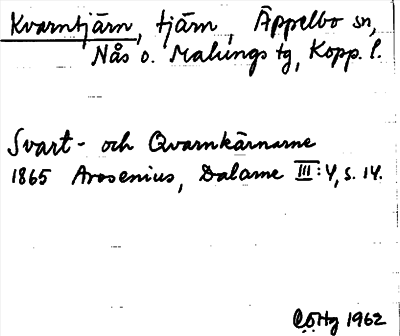 Kvarntjärn, tjärn, Äppelbo sn,
Nås o. Malungs tg, Kopp. l.
Svart- och Qvarnkärnarne
1865 Arosenius, Dalarne III:4, s. 14.
CÖHg 1962